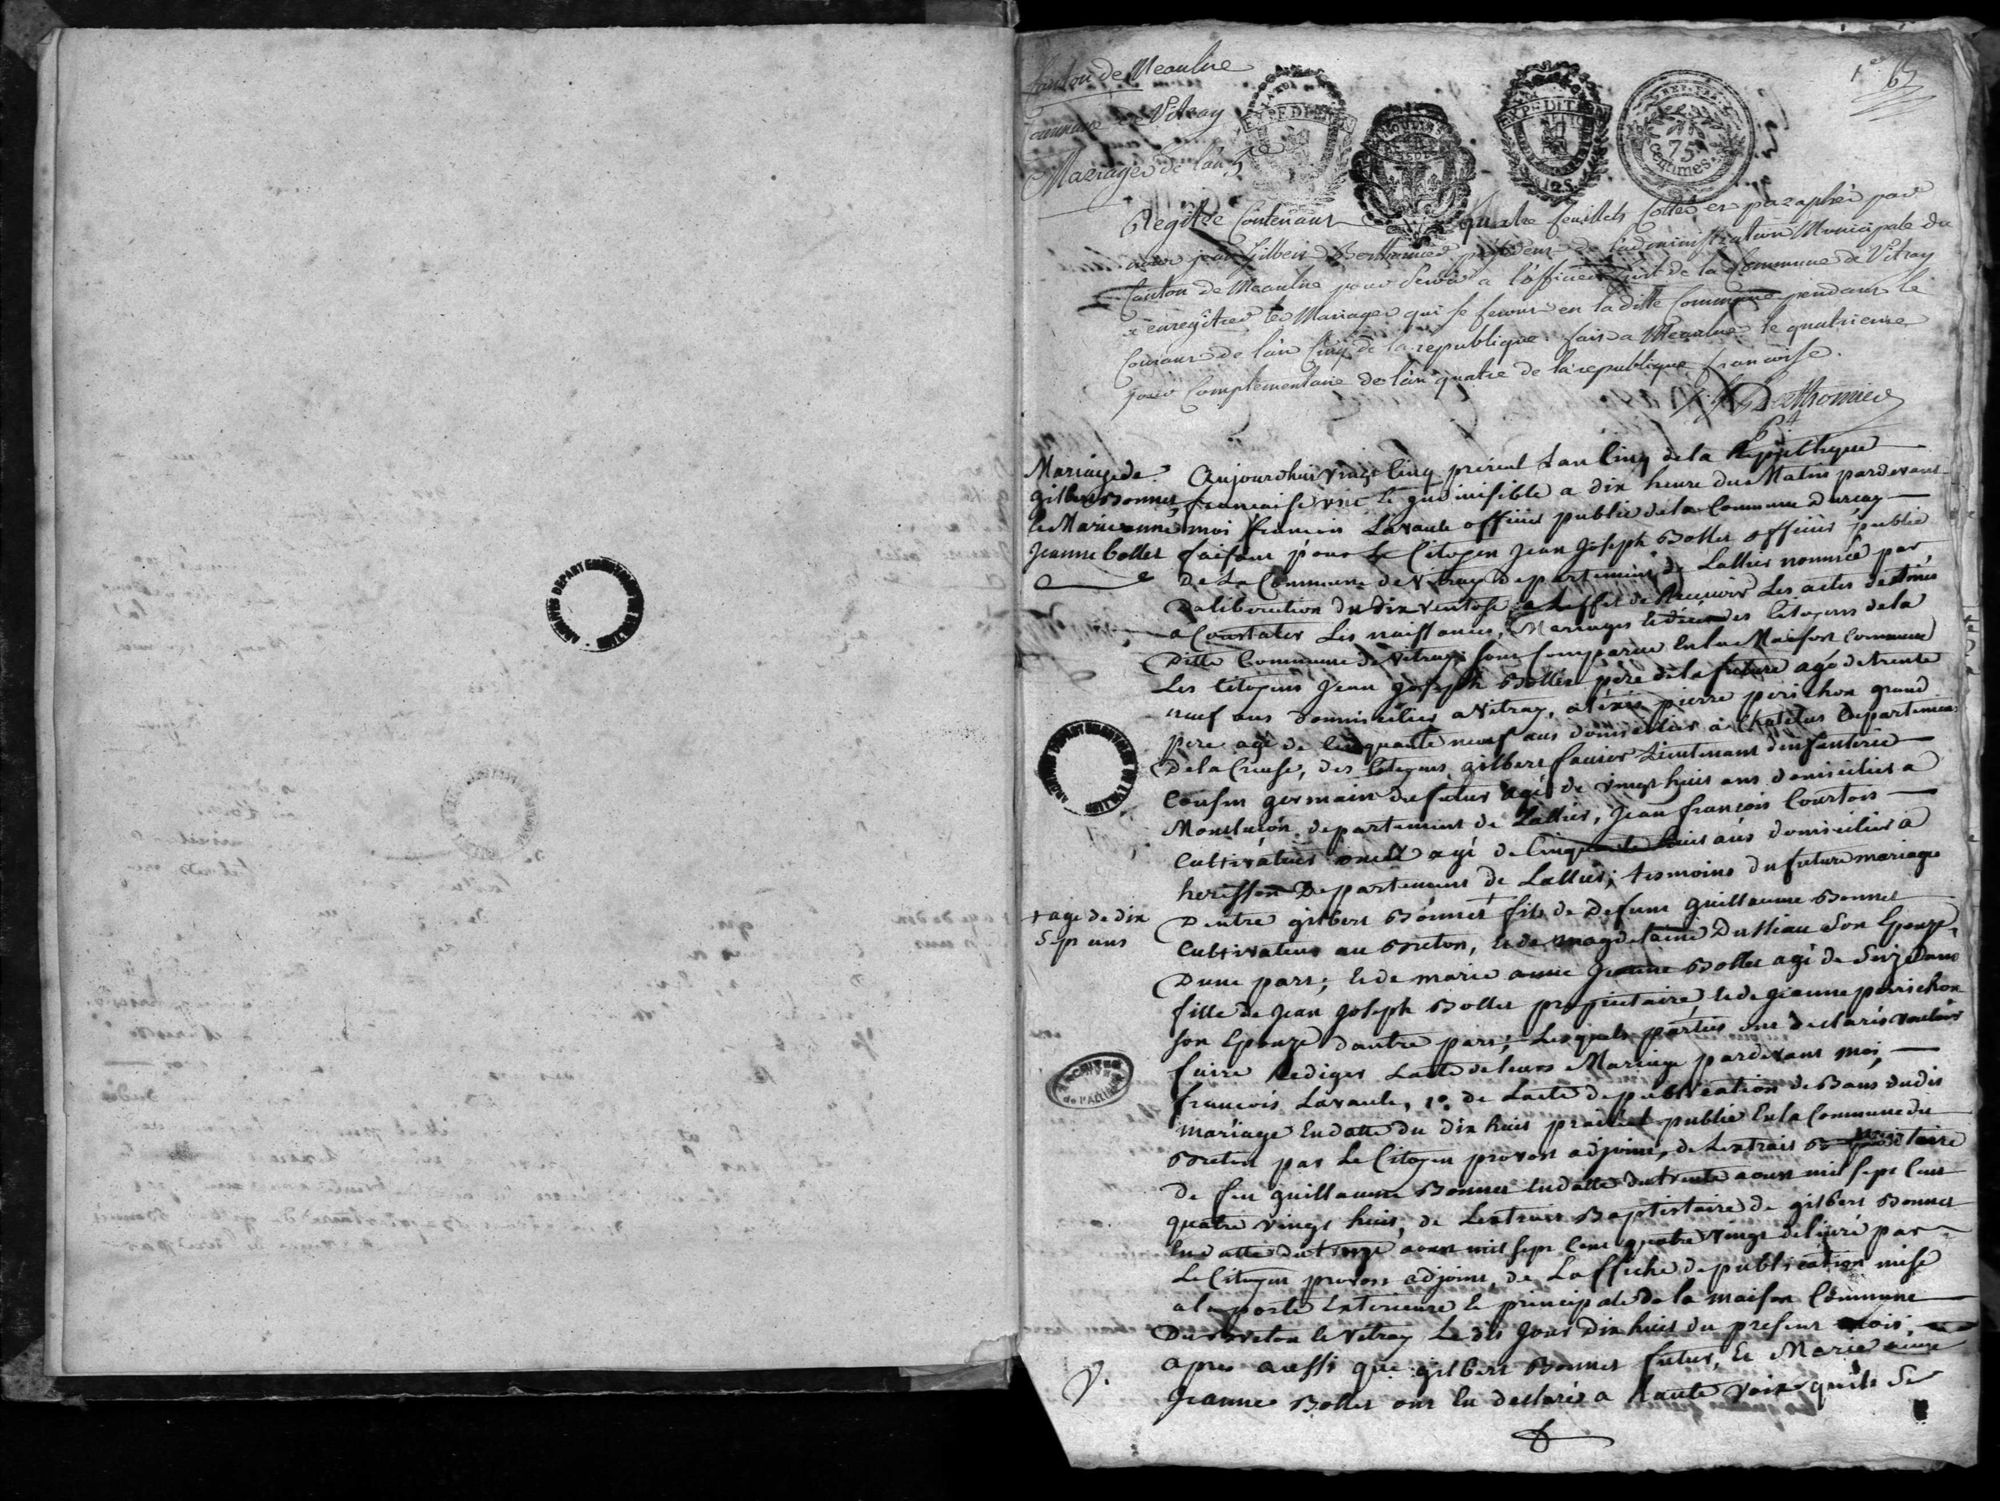 Canton de Meaulne
Commune de Vitray
Mariages de l'an 5e
1er
EXPEDIENTES
MOULINS
EXPEDITION
125
REP. FRA.
75
centimes.
Registre Contenant quatre feuillets Cottés et paraphés par
nous jean Gilbert Berthomier president de l'administration Municipale du
Canton de Meaulne pour servir a l'officier civil de la Commune de Vitray
a enregîtrer les Mariages qui se feront en la ditte Commune pendant le
Courant de l'an Cinq de la republique. fait a Meaulne le quatrieme
jour Complementaire de l'an quatre de la republique francoise.
J. G. Berthomier
Pdt
Mariage de
gilbert Bonnet
le Marie anne
Jeanne bollet
Aujourdhui vingt Cinq prereal Lan Cinq de la Republique
francaise une et indivisible a dix heure du Matin pardevant
moi francois Lavaute officier public de la Commune Durcay
faisant pour Le Citoyen Jean Joseph Bollet officier public
De La Commune de Vitray Departement de Lallier nommée par
Daliberation du dix ventose a Leffet de Recevoir Les actes destinés
a Constater Les naissances, Mariages le décès des Citoyens de la
Ditte Commune de Vitray sont Comparue En la Maison Commune
Les Citoyens Jean Joseph Bollet pere de la future agé de trente
neuf ans domicilier a Vitray, alexis pierre perichon grand
pere agé de Cinquante neuf ans domicilier à Chatelus Departement
De la Creuse, des Citoyens gilbert faurier Lieutenant d'enfanterie
Cousin germain du futur agé de vingt huit ans domicilier a
Monluçon departement de Lallier, Jean françois Courtois
Cultivateur oncle agé de Cinquante huit ans domicilier a
herisson Departement de Lallier; tesmoins du future mariage
+ age de dix
sept ans
D'entre gilbert Bonnet + fils de Defunt guillaume Bonnet
Cultivateur au Breton, et de magdelaine Duttiau son Epouze,
Dune part; et de marie anne Jeanne Bollet agé de Seize ans
fille de Jean Joseph Bollet proprietaire et de jeanne perrichon
son Epouze dautre part; Lesquels parties ont declarés vouloir
faire Rediger Lacte de leurs Mariage pardevant moi,
francois Lavaute, 1o. de Lacte de publication de Bans dudit
mariage En datte du dix huit prairial publié En la Commune du
Breton par Le Citoyen provost adjoint, de Lextrait mortuaire
de feu guillaume Bonnet En datte du trente aoust mil sept Cent
quatre vingt huit, de Lextrait Baptistaire de gilbert Bonnet
En datte du treize aoust mil sept Cent quatre vingt delivré par
Le Citoyen provost adjoint, de Laffiche de publication mise
a la porte Exterieure le principale de la maison Commune
Du Breton le Vitray Le dit Jour Dix huit du present mois
apres aussi que gilbert Bonnet futur, Et Marie anne
Jeanne Bollet ont En declaré a haute voix quils Se
ARCHIVES DEPARTEMENTALES DE L'ALLIER
ARCHIVES DEPARTEMENTALES DE L'ALLIER
ARCHIVES
de l'ALLIER